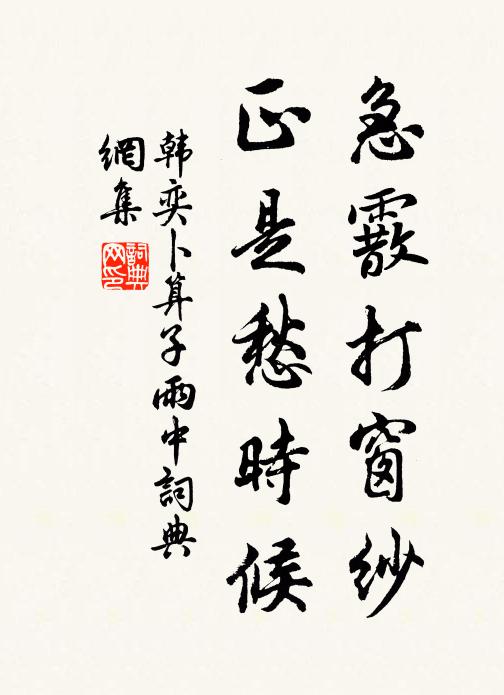 急霰打窗紗
正是愁時候
韩奕卜算子雨中詞典
網集
詞典网印